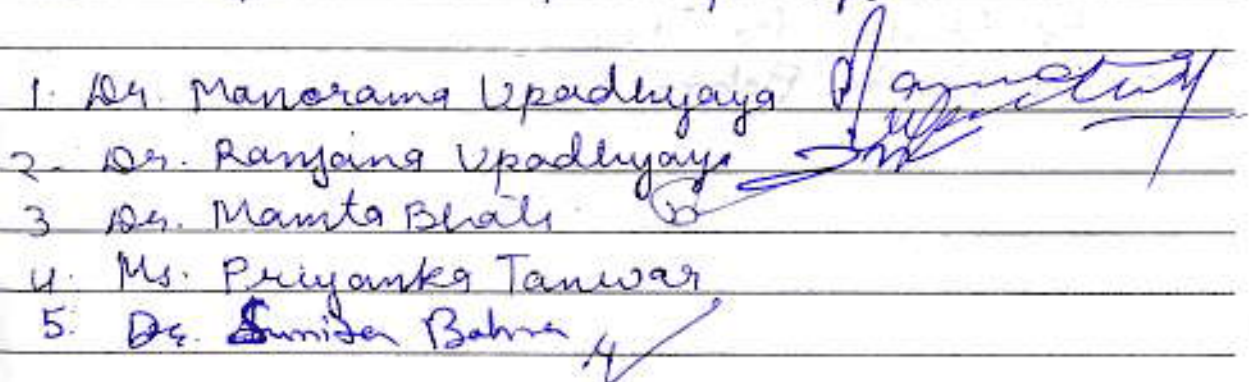 1. Dr. Manorama Upadhyaya
2. Dr. Ranjana Upadhyaya
3 Dr. Mamta Bhati
4. Ms. Priyanka Tanwar
5. Dr. Sunita